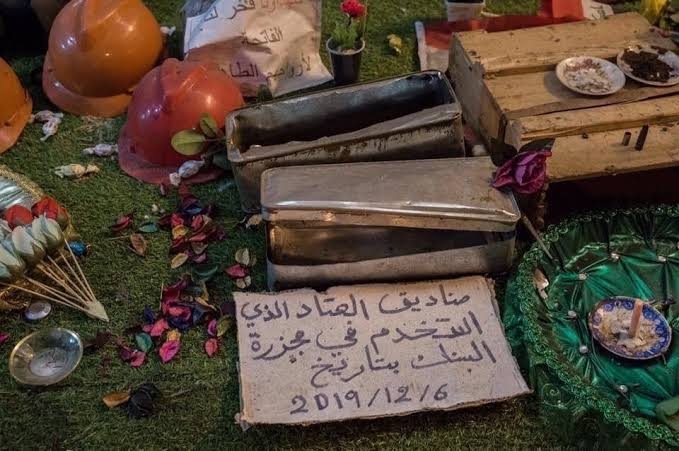 فخر لنا
الفاتحة
لأرواحهم الطا
صناديق العتاد الذي
استخدم في مجزرة
السنك بتاريخ
2019/12/6